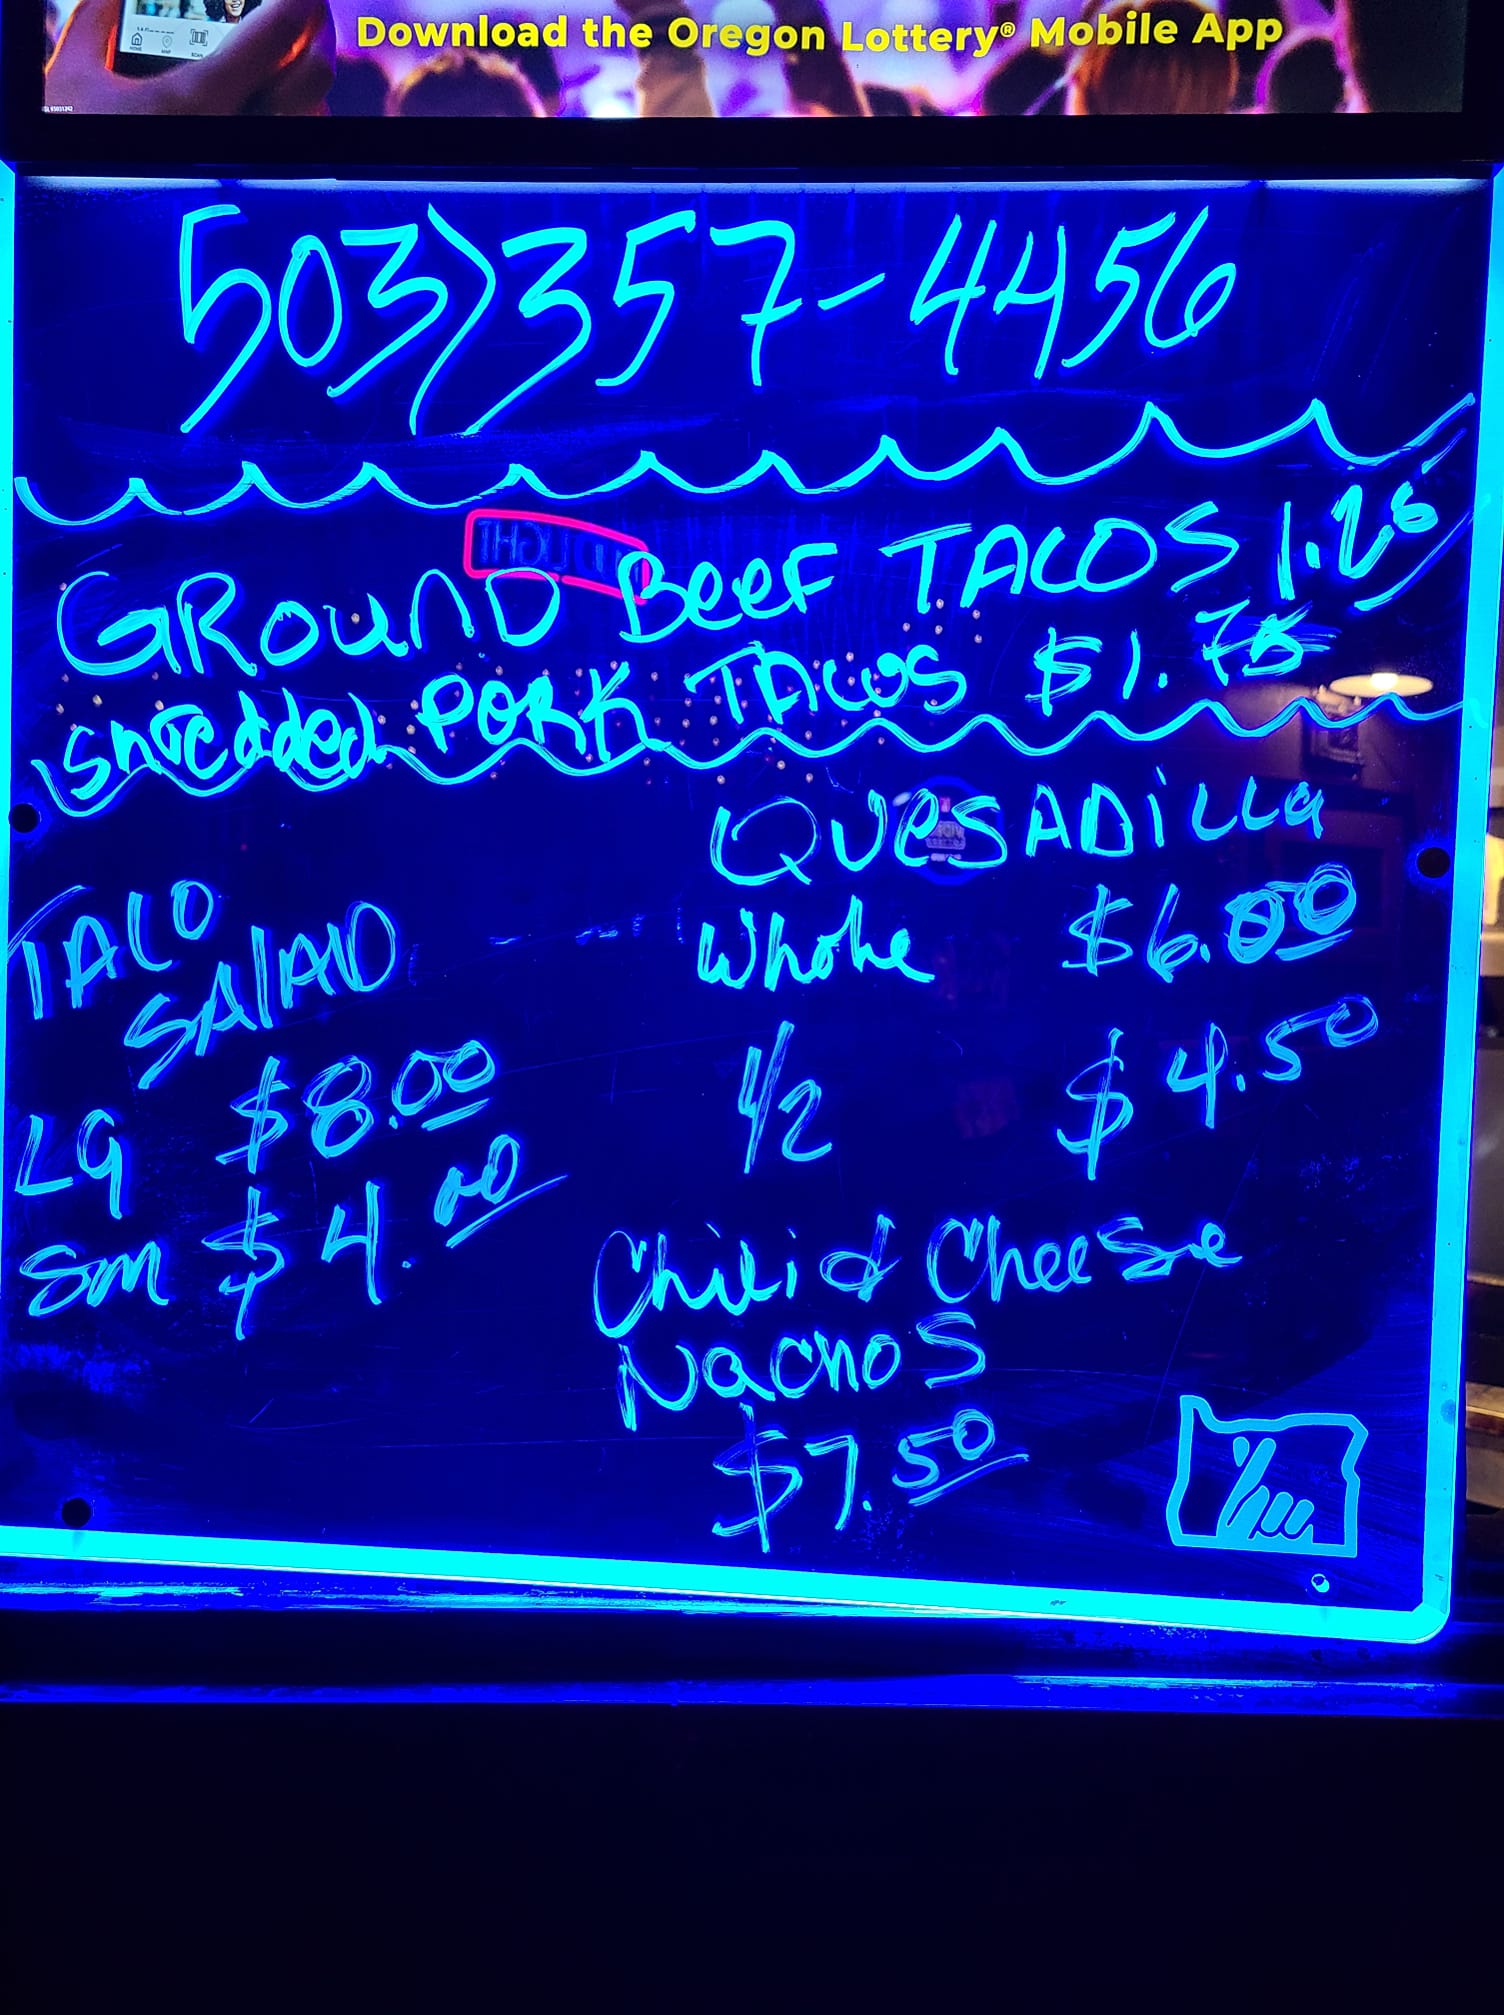 Download the Oregon Lottery® Mobile App
503)357-4456
GROUND BeeF TACOS 1.25
shredded PORK TACOS $1.75
TACO
SAlAD
LG $8.00
Sm $4.00
QUeSADiLLa
Whole $6.00
1/2 $4.50
Chili & Cheese
NachoS
$7.50